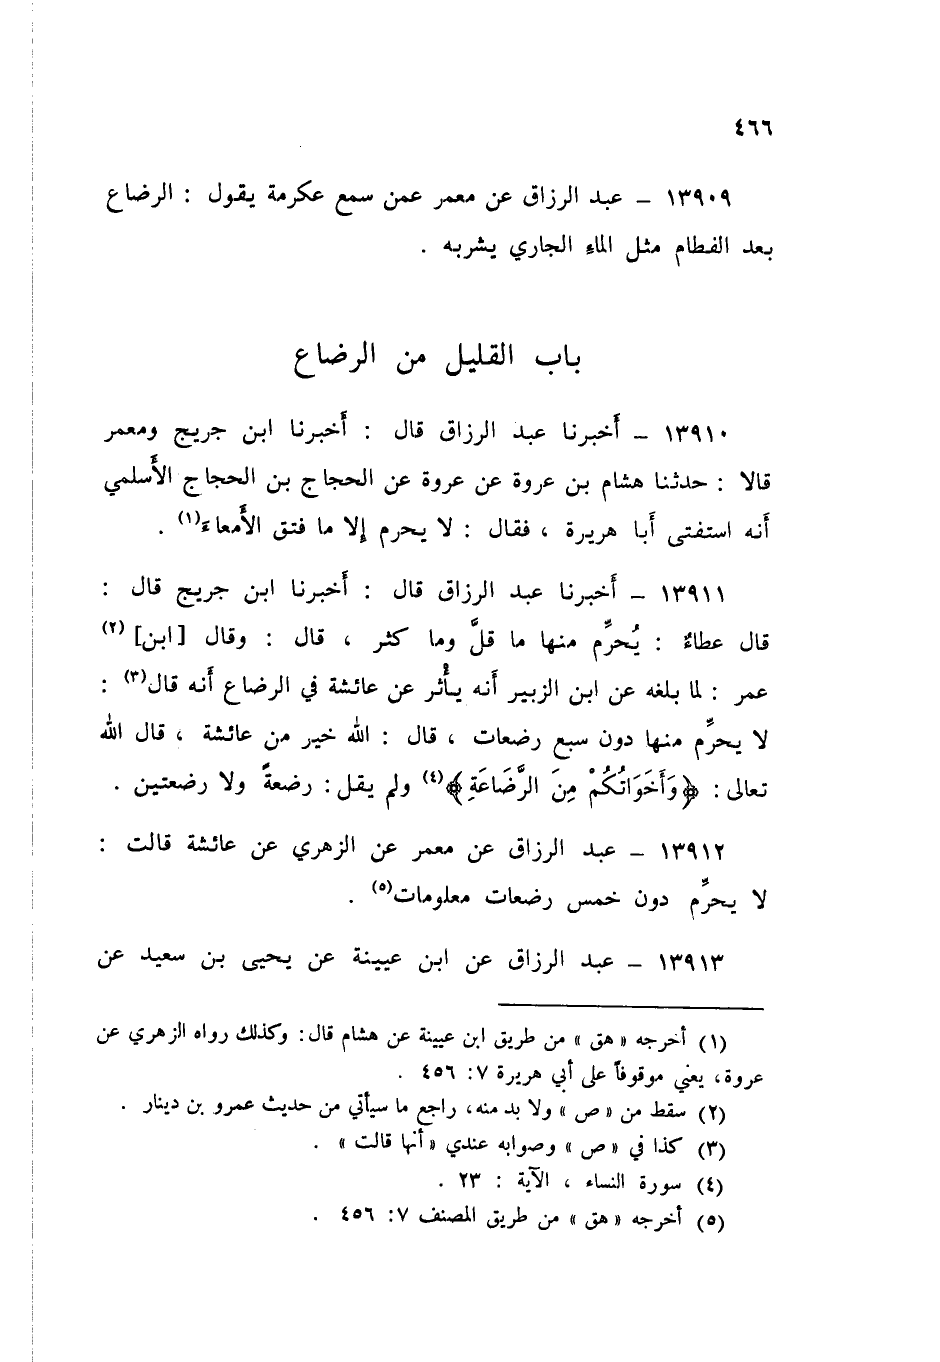 ٤٦٦
١٣٩٠٩ – عبد الرزاق عن معمر عمن سمع عكرمة يقول : الرضاع
بعد الفطام مثل الماءِ الجاري يشربه .
باب القليل من الرضاع
١٣٩١٠ – أَخبرنا عبد الرزاق قال : أَخبرنا ابن جريج ومعمر
قالا : حدثنا هشام بن عروة عن عروة عن الحجاج بن الحجاج الأَسلمي
أَنه استفتى أَبا هريرة ، فقال : لا يحرم إلا ما فتق الأَمعاءَ(١) .
١٣٩١١ – أَخبرنا عبد الرزاق قال : أَخبرنا ابن جريج قال :
قال عطاءٌ : يُحرِّم منها ما قلَّ وما كثر ، قال : وقال [ابن](٢)
عمر : لما بلغه عن ابن الزبير أَنه يأْثر عن عائشة في الرضاع أَنه قال(٣) :
لا يحرِّم منها دون سبع رضعات ، قال : الله خير من عائشة ، قال الله
تعالى : ﴿وَأَخَوَاتُكُمْ مِنَ الرَّضَاعَةِ﴾(٤) ولم يقل : رضعةً ولا رضعتين .
١٣٩١٢ – عبد الرزاق عن معمر عن الزهري عن عائشة قالت :
لا يحرِّم دون خمس رضعات معلومات(٥) .
١٣٩١٣ – عبد الرزاق عن ابن عيينة عن يحيى بن سعيد عن
(١) أخرجه « هق » من طريق ابن عيينة عن هشام قال : وكذلك رواه الزهري عن
عروة، يعني موقوفاً على أبي هريرة ٧: ٤٥٦ .
(٢) سقط من « ص » ولا بد منه، راجع ما سيأتي من حديث عمرو بن دينار .
(٣) كذا في « ص » وصوابه عندي « أنها قالت » .
(٤) سورة النساء ، الآية : ٢٣ .
(٥) أخرجه « هق » من طريق المصنف ٧: ٤٥٦ .